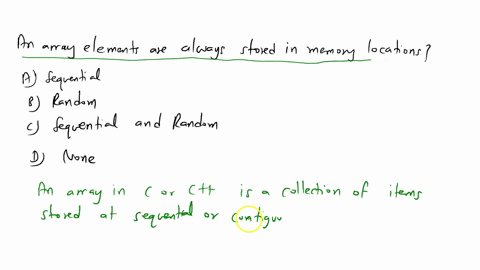 An array elements are always stored in memory locations?
A) Sequential
B) Random
C) Sequential and Random
D) None
An array in C or C++ is a collection of items
stored at sequential or contiguu